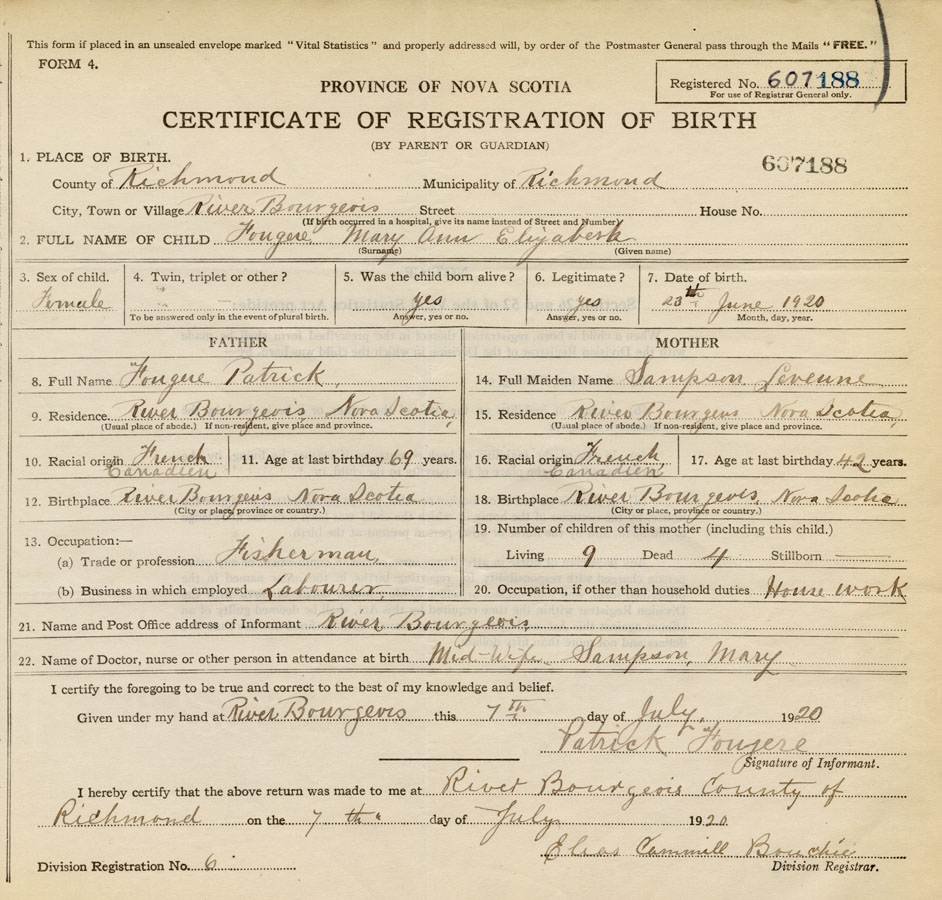 This form if placed in an unsealed envelope marked "Vital Statistics" and properly addressed will, by order of the Postmaster General pass through the Mails "FREE."
FORM 4.
Registered No. 607188
For use of Registrar General only.
PROVINCE OF NOVA SCOTIA
CERTIFICATE OF REGISTRATION OF BIRTH
(BY PARENT OR GUARDIAN)
607188
1. PLACE OF BIRTH.
County of Richmond Municipality of Richmond
City, Town or Village River Bourgeois Street House No.
(If birth occurred in a hospital, give its name instead of Street and Number)
2. FULL NAME OF CHILD Fougere Mary Ann Elizabeth
(Surname) (Given name)
3. Sex of child. 4. Twin, triplet or other? 5. Was the child born alive? 6. Legitimate? 7. Date of birth.
Female yes yes 23th June 1920
To be answered only in the event of plural birth. Answer, yes or no. Answer, yes or no. Month, day, year.
FATHER MOTHER
8. Full Name Fougere Patrick 14. Full Maiden Name Sampson
9. Residence. River Bourgeois Nova Scotia 15. Residence River Bourgeois Nova Scotia
(Usual place of abode.) If non-resident, give place and province. (Usual place of abode.) If non-resident, give place and province.
10. Racial origin French 11. Age at last birthday 69 years. 16. Racial origin French 17. Age at last birthday 42 years.
Canadien Canadien
12. Birthplace River Bourgeois Nova Scotia 18. Birthplace River Bourgeois, Nova Scotia
(City or place, province or country.) (City or place, province or country.)
13. Occupation:— 19. Number of children of this mother (including this child.)
(a) Trade or profession Fisherman Living 9 Dead 4 Stillborn —
(b) Business in which employed Labourer 20. Occupation, if other than household duties House work
21. Name and Post Office address of Informant River Bourgeois
22. Name of Doctor, nurse or other person in attendance at birth Mid-Wife Sampson, Mary
I certify the foregoing to be true and correct to the best of my knowledge and belief.
Given under my hand at River Bourgeois this 7th day of July 1920
Patrick Fougere
Signature of Informant.
I hereby certify that the above return was made to me at River Bourgeois County of
Richmond on the 7th day of July 1920
Bouchie
Division Registration No. 6 Division Registrar.